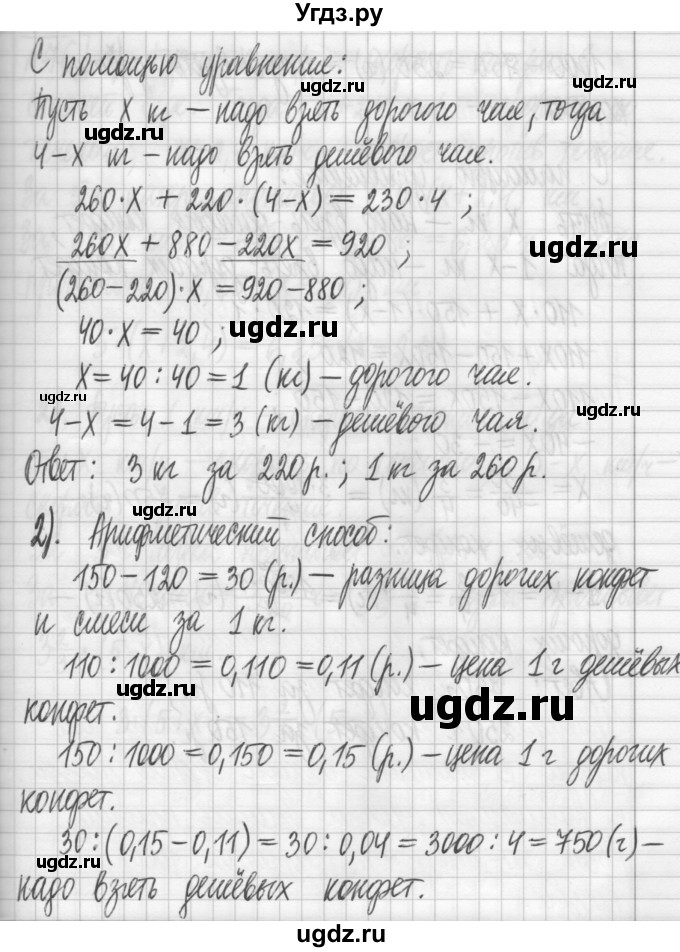 Угдз.ру
С помощью уравнение:
Пусть х кг – надо взять дорогого чая, тогда
4-х кг – надо взять дешёвого чая.
260·х + 220·(4-х) = 230·4 ;
260х + 880 - 220х = 920 ;
(260-220)·х = 920-880 ;
40·х = 40 ;
х = 40 : 40 = 1 (кг) – дорогого чая.
4-х = 4-1 = 3 (кг) – дешёвого чая.
Ответ: 3 кг за 220 р. ; 1 кг за 260 р.
2). Арифметический способ:
150-120 = 30 (р.) – разница дорогих конфет
и смеси за 1 кг.
110 : 1000 = 0,110 = 0,11 (р.) – цена 1 г дешёвых
конфет.
150 : 1000 = 0,150 = 0,15 (р.) – цена 1 г дорогих
конфет.
30 : (0,15-0,11) = 30 : 0,04 = 3000 : 4 = 750 (г) –
надо взять дешёвых конфет.
ugdz.ru
ugdz.ru
ugdz.ru
ugdz.ru
ugdz.ru
ugdz.ru
ugdz.ru
ugdz.ru
ugdz.ru
ugdz.ru
ugdz.ru
ugdz.ru